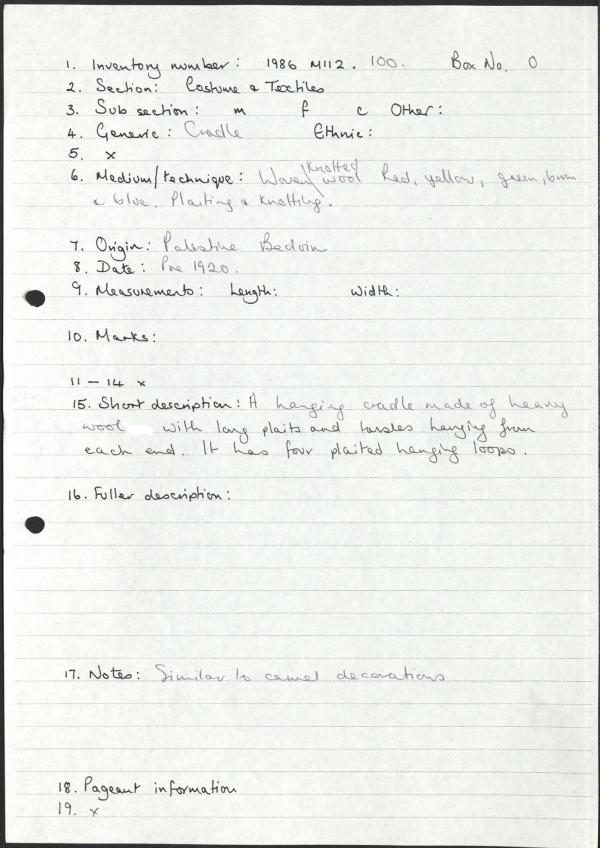 1. Inventory number: 1986 M112. 100. Box No. 0
2. Section: Costume & Textiles
3. Sub section: m f c Other:
4. Generic: Cradle Ethnic:
5. x
knotted
6. Medium/technique: Woven wool Red, yellow, green, brown
& blue. Plaiting & knotting.
7. Origin: Palestine Bedoin
8. Date: Pre 1920.
9. Measurements: Length: Width:
10. Marks:
11 – 14 x
15. Short description: A hanging cradle made of heavy
wool with long plaits and tassles hanging from
each end. It has four plaited hanging loops.
16. Fuller description:
17. Notes: Similar to camel decorations
18. Pageant information
19. x